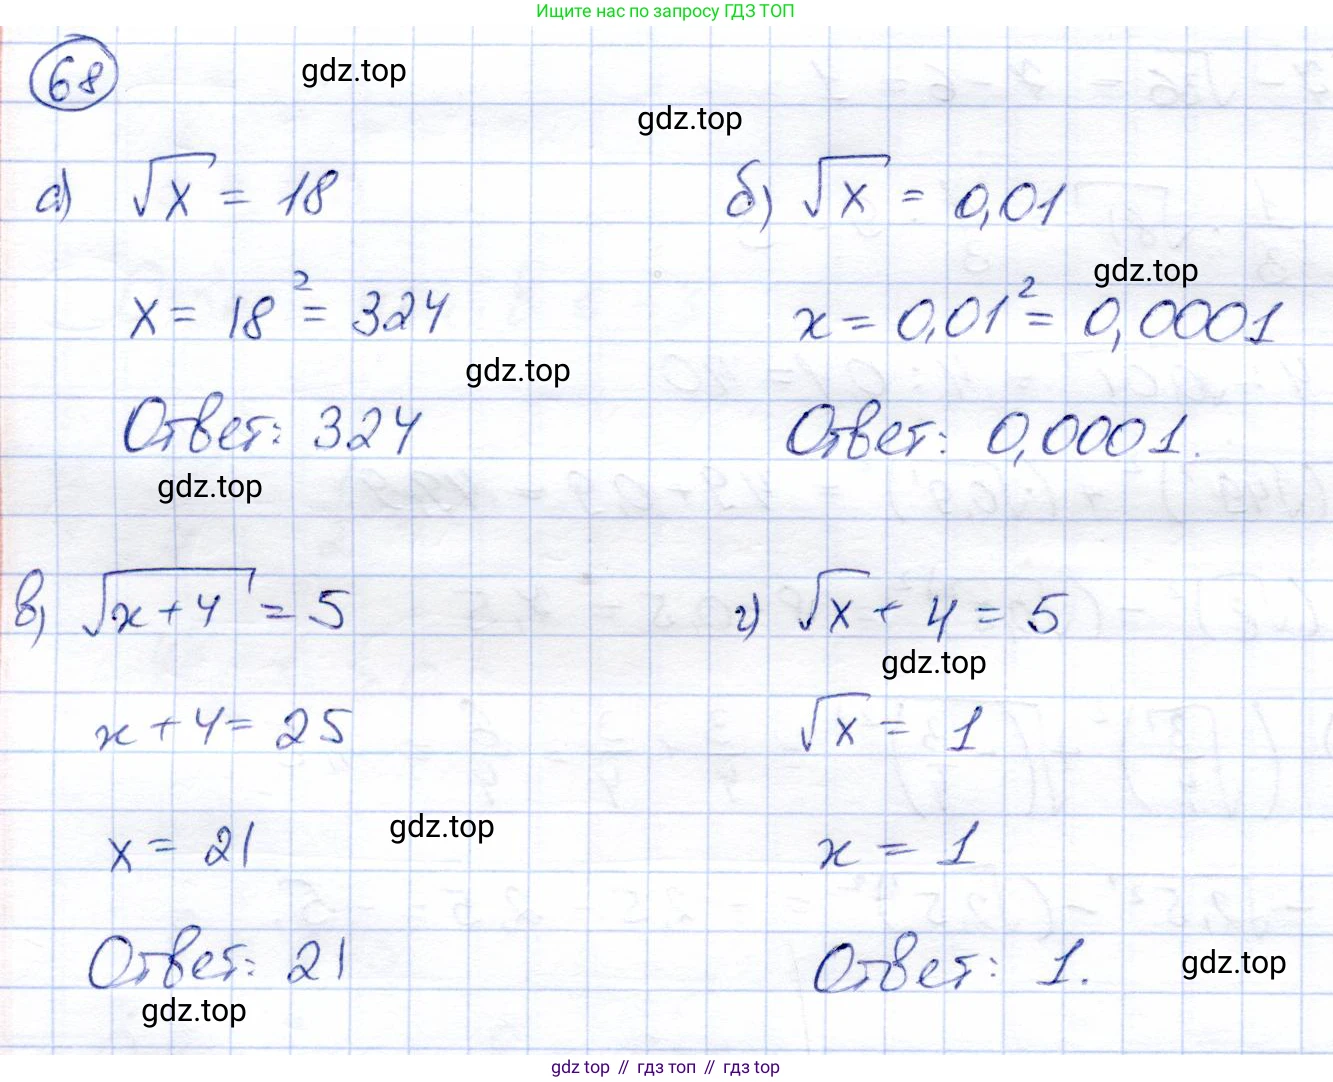 Ищите нас по запросу ГДЗ ТОП
68
gdz.top
gdz.top
а) √x = 18
x = 18² = 324
gdz.top
Ответ: 324
gdz.top
б) √x = 0,01
gdz.top
x = 0,01² = 0,0001
Ответ: 0,0001.
в) √x+4 = 5
x + 4 = 25
x = 21
gdz.top
Ответ: 21
gdz.top
г) √x + 4 = 5
gdz.top
√x = 1
x = 1
Ответ: 1.
gdz.top
gdz top // гдз топ // gdz top